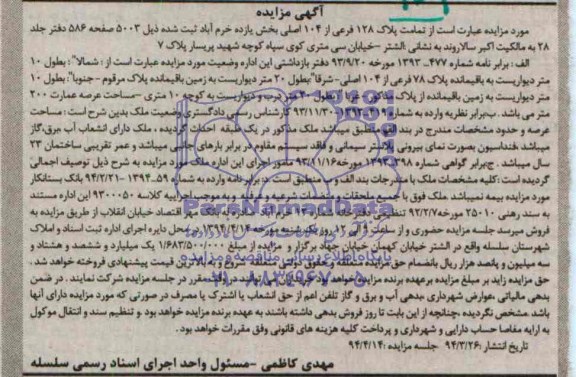 آگهی مزایده
مورد مزایده عبارت است از تمامت پلاک ۱۲۸ فرعی از ۱۰۴ اصلی بخش یازده خرم آباد ثبت شده ذیل ۵۰۰۳ صفحه ۵۸۶ دفتر جلد
۲۸ به مالکیت اکبر سالاروند به نشانی :الشتر -خیابان سی متری کوی سپاه کوچه شهید پریسار پلاک ۷
الف : برابر نامه شماره ۴۷۷- ۱۳۹۳ مورخه ۹۳/۹/۲۰ دفتر بازداشتی این اداره وضعیت مورد مزایده عبارت است از : شمالا": بطول ۱۰
متر دیواریست به باقیمانده پلاک ۷۸ فرعی از ۱۰۴ اصلی- شرقا"بطول ۲۰ متر دیواریست به زمین باقیمانده پلاک مرقوم -جنوبا": بطول ۱۰
متر دیواریست به زمین باقیمانده از پلاک مذکور بطول ۲۰ متر درب و دیواریست به کوچه ۱۰ متری -مساحت عرصه عمارت ۲۰۰
متر می باشد . ب:برابر نظریه وارده به شماره ۹۳/۱۱/۳۰ کارشناس رسمی دادگستری وضعیت ملک بدین شرح است : مساحت
عرصه و حدود مشخصات مندرج در بند الف منطبق میباشد ملک مذکور در یک طبقه احداث گردیده ، ملک دارای انشعاب آب ،برق،گاز
میباشد .فنداسیون بصورت نمای بیرونی پلاستر سیمانی و فاقد سیستم مقاوم در برابر بارهای جانبی میباشد و عمر تقریبی ساختمان ۲۳
سال میباشد . ج:برابر گواهی شماره ۱۳۹۳ مورخه ۹۳/۱۱/۱۶ مامور اجرای این اداره ملک مورد مزایده به شرح ذیل توصیف اجمالی
گردیده است :کلیه مشخصات ملک با مندرجات بند الف و ب منطبق است .د:برابر نامه وارده به شماره ۱۳۹۴۰۵۹- ۹۴/۲/۲۱ بانک بستانکار
مورد مزایده بیمه نمیباشد .ملک فوق با جمیع ملحقات و منضمات شرعیه و عرفیه و به موجب اجراییه کلاسه ۹۳۰۰۰۵۰ این اداره مستند
به سند رهنی ۲۵۰۱۰ مورخه ۹۲/۲/۷ تنظیمی دفترخانه شماره ۱۰ خرم آباد صادره له بانک مهر اقتصاد خیابان انقلاب از طریق مزایده به
فروش میرسد جلسه مزایده حضوری و از ساعت ۹ الی ۱۲ روز یکشنبه مورخه ۱۳۹۴/۴/۱۴ در محل دایره اجرای اداره ثبت اسناد و املاک
شهرستان سلسله واقع در الشتر خیابان کهمان خیابان جهاد برگزار و مزایده از مبلغ ۱/۶۸۳/۵۰۰/۰۰۰ یک میلیارد و ششصد و هشتاد و
سه میلیون و پانصد هزار ریال بانضمام حق مزایده متعلقه و حقوق دولتی متعلقه شروع و به بالاترین قیمت پیشنهادی فروخته خواهد شد .
حق مزایده زاید بر مبلغ مزایده برعهده برنده مزایده خواهد بود خریداران می توانند در وقت مقرر در جلسه مزایده شرکت نمایند . در ضمن
بدهی مالیاتی عوارض شهرداری .بدهی آب و برق و گاز تلفن اعم از حق انشعاب یا اشتراک یا مصرف در صورتی که مورد مزایده دارای آنها
باشد .مشخص نگردیده .چنانچه از این بابت تا روز فروش بدهی داشته باشند به عهده برنده مزایده خواهد بود .و تنظیم سند و انتقال موکول
به ارایه مفاصا حساب دارایی و شهرداری و پرداخت کلیه هزینه های قانونی وفق مقررات خواهد بود .
تاریخ انتشار :۹۴/۳/۲۶ جلسه مزایده :۹۴/۴/۱۴
مهدی کاظمی -مسئول واحد اجرای اسناد رسمی سلسله
ParsNamadData
پایگاه اطلاع رسانی مناقصه و مزایده
۰۲۱-۸۸۳۴۹۶۷۰-۵